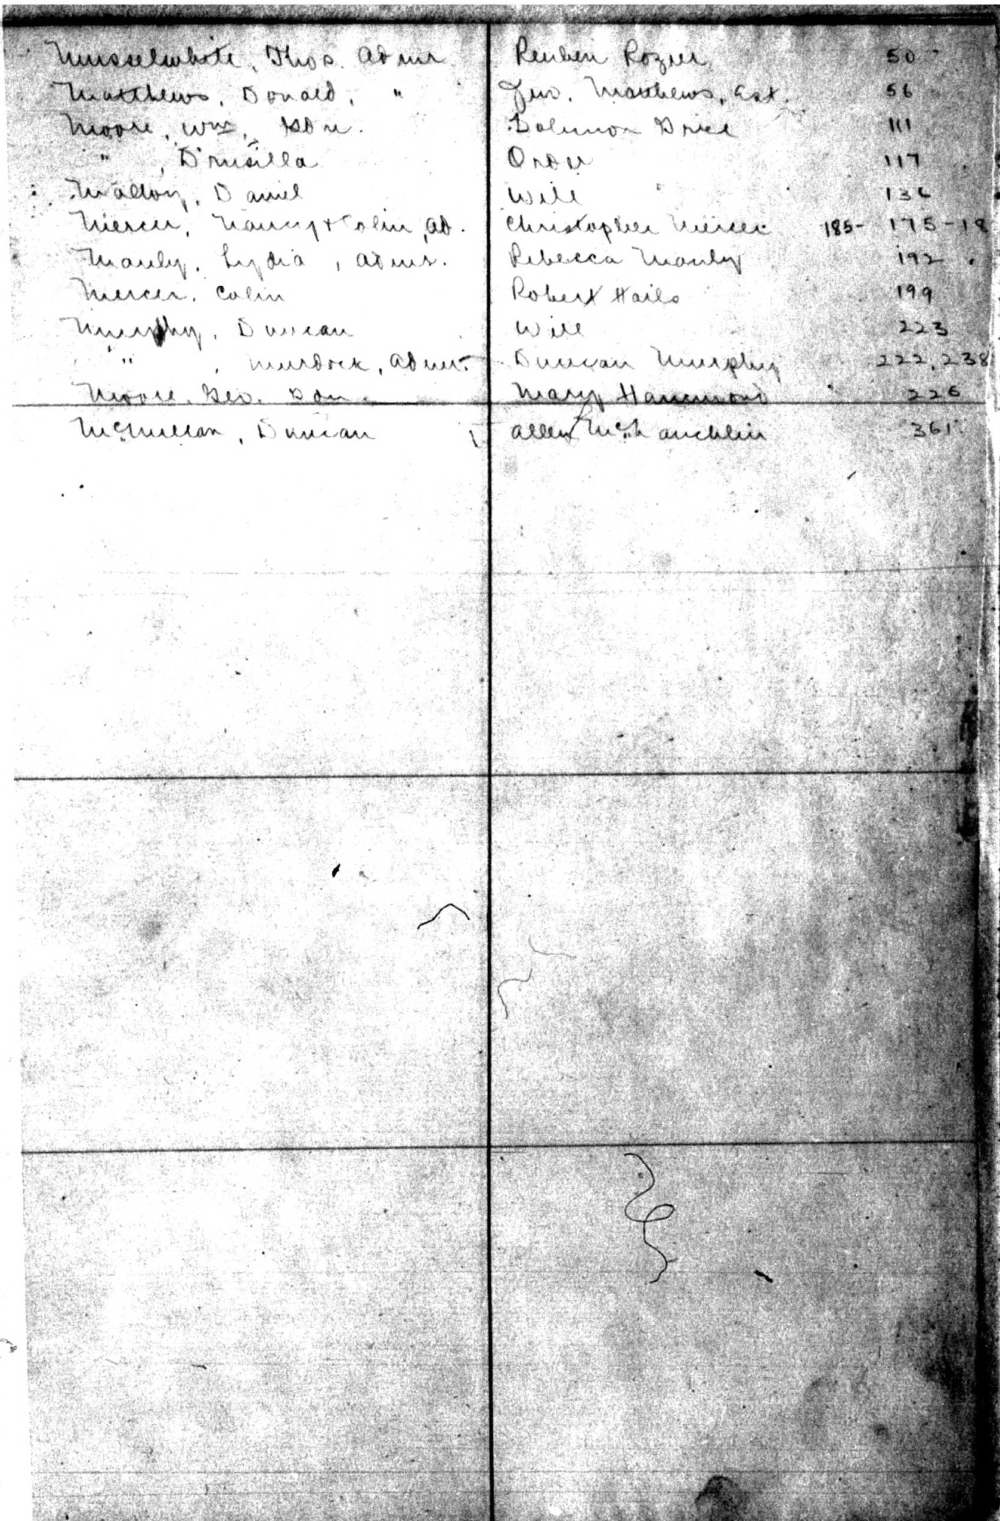 Musselwhite, Thos. Admr. Reuben Rozier 50
Matthews, Donald, " Jno. Matthews, Est. 56
Moore, Wm, Gdn. Solomon Grice 111
" , Drusilla Order 117
Malloy, Daniel Will 136
Mercer, Nancy & Colin, Ad. Christopher Mercer 185- 175-18
Manly, Lydia, Admr. Rebecca Manly 192
Mercer, Colin Robert Hails 199
Murphy, Duncan Will 223
" , Murdock, Admr. Duncan Murphy 222, 238
Moore, Geo. Gdn. Mary Hammond 226
McMillan, Duncan Allen McLauchlin 361